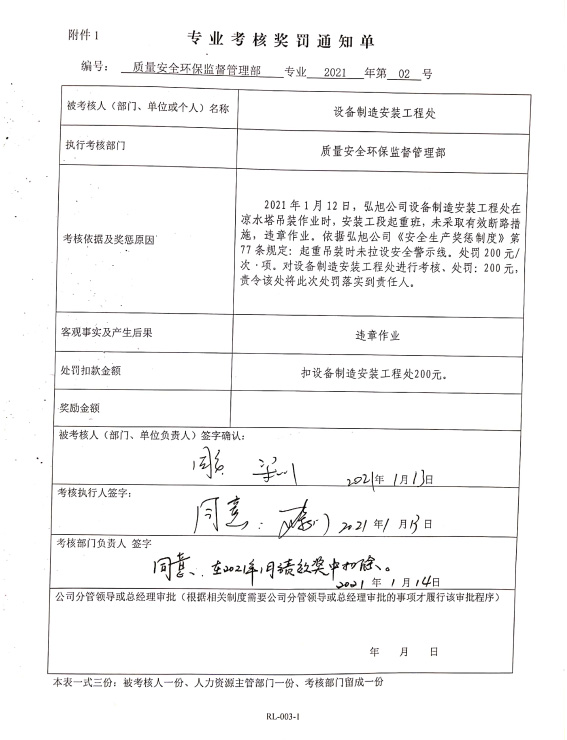 附件1
专业考核奖罚通知单
编号: 质量安全环保监督管理部 专业 2021 年第 02 号
被考核人（部门、单位或个人）名称 设备制造安装工程处
执行考核部门 质量安全环保监督管理部
考核依据及奖惩原因
2021年1月12日，弘旭公司设备制造安装工程处在
凉水塔吊装作业时，安装工段起重班，未采取有效断路措
施，违章作业。依据弘旭公司《安全生产奖惩制度》第
77条规定：起重吊装时未拉设安全警示线。处罚200元/
次·项。对设备制造安装工程处进行考核、处罚：200元，
责令该处将此次处罚落实到责任人。
客观事实及产生后果 违章作业
处罚扣款金额 扣设备制造安装工程处200元。
奖励金额
被考核人（部门、单位负责人）签字确认：
2021年1月13日
考核执行人签字：
同意： 2021年1月13日
考核部门负责人 签字
同意、在2021年1月绩效奖中扣除。
2021年1月14日
公司分管领导或总经理审批（根据相关制度需要公司分管领导或总经理审批的事项才履行该审批程序）
年 月 日
本表一式三份：被考核人一份、人力资源主管部门一份、考核部门留成一份
RL-003-1